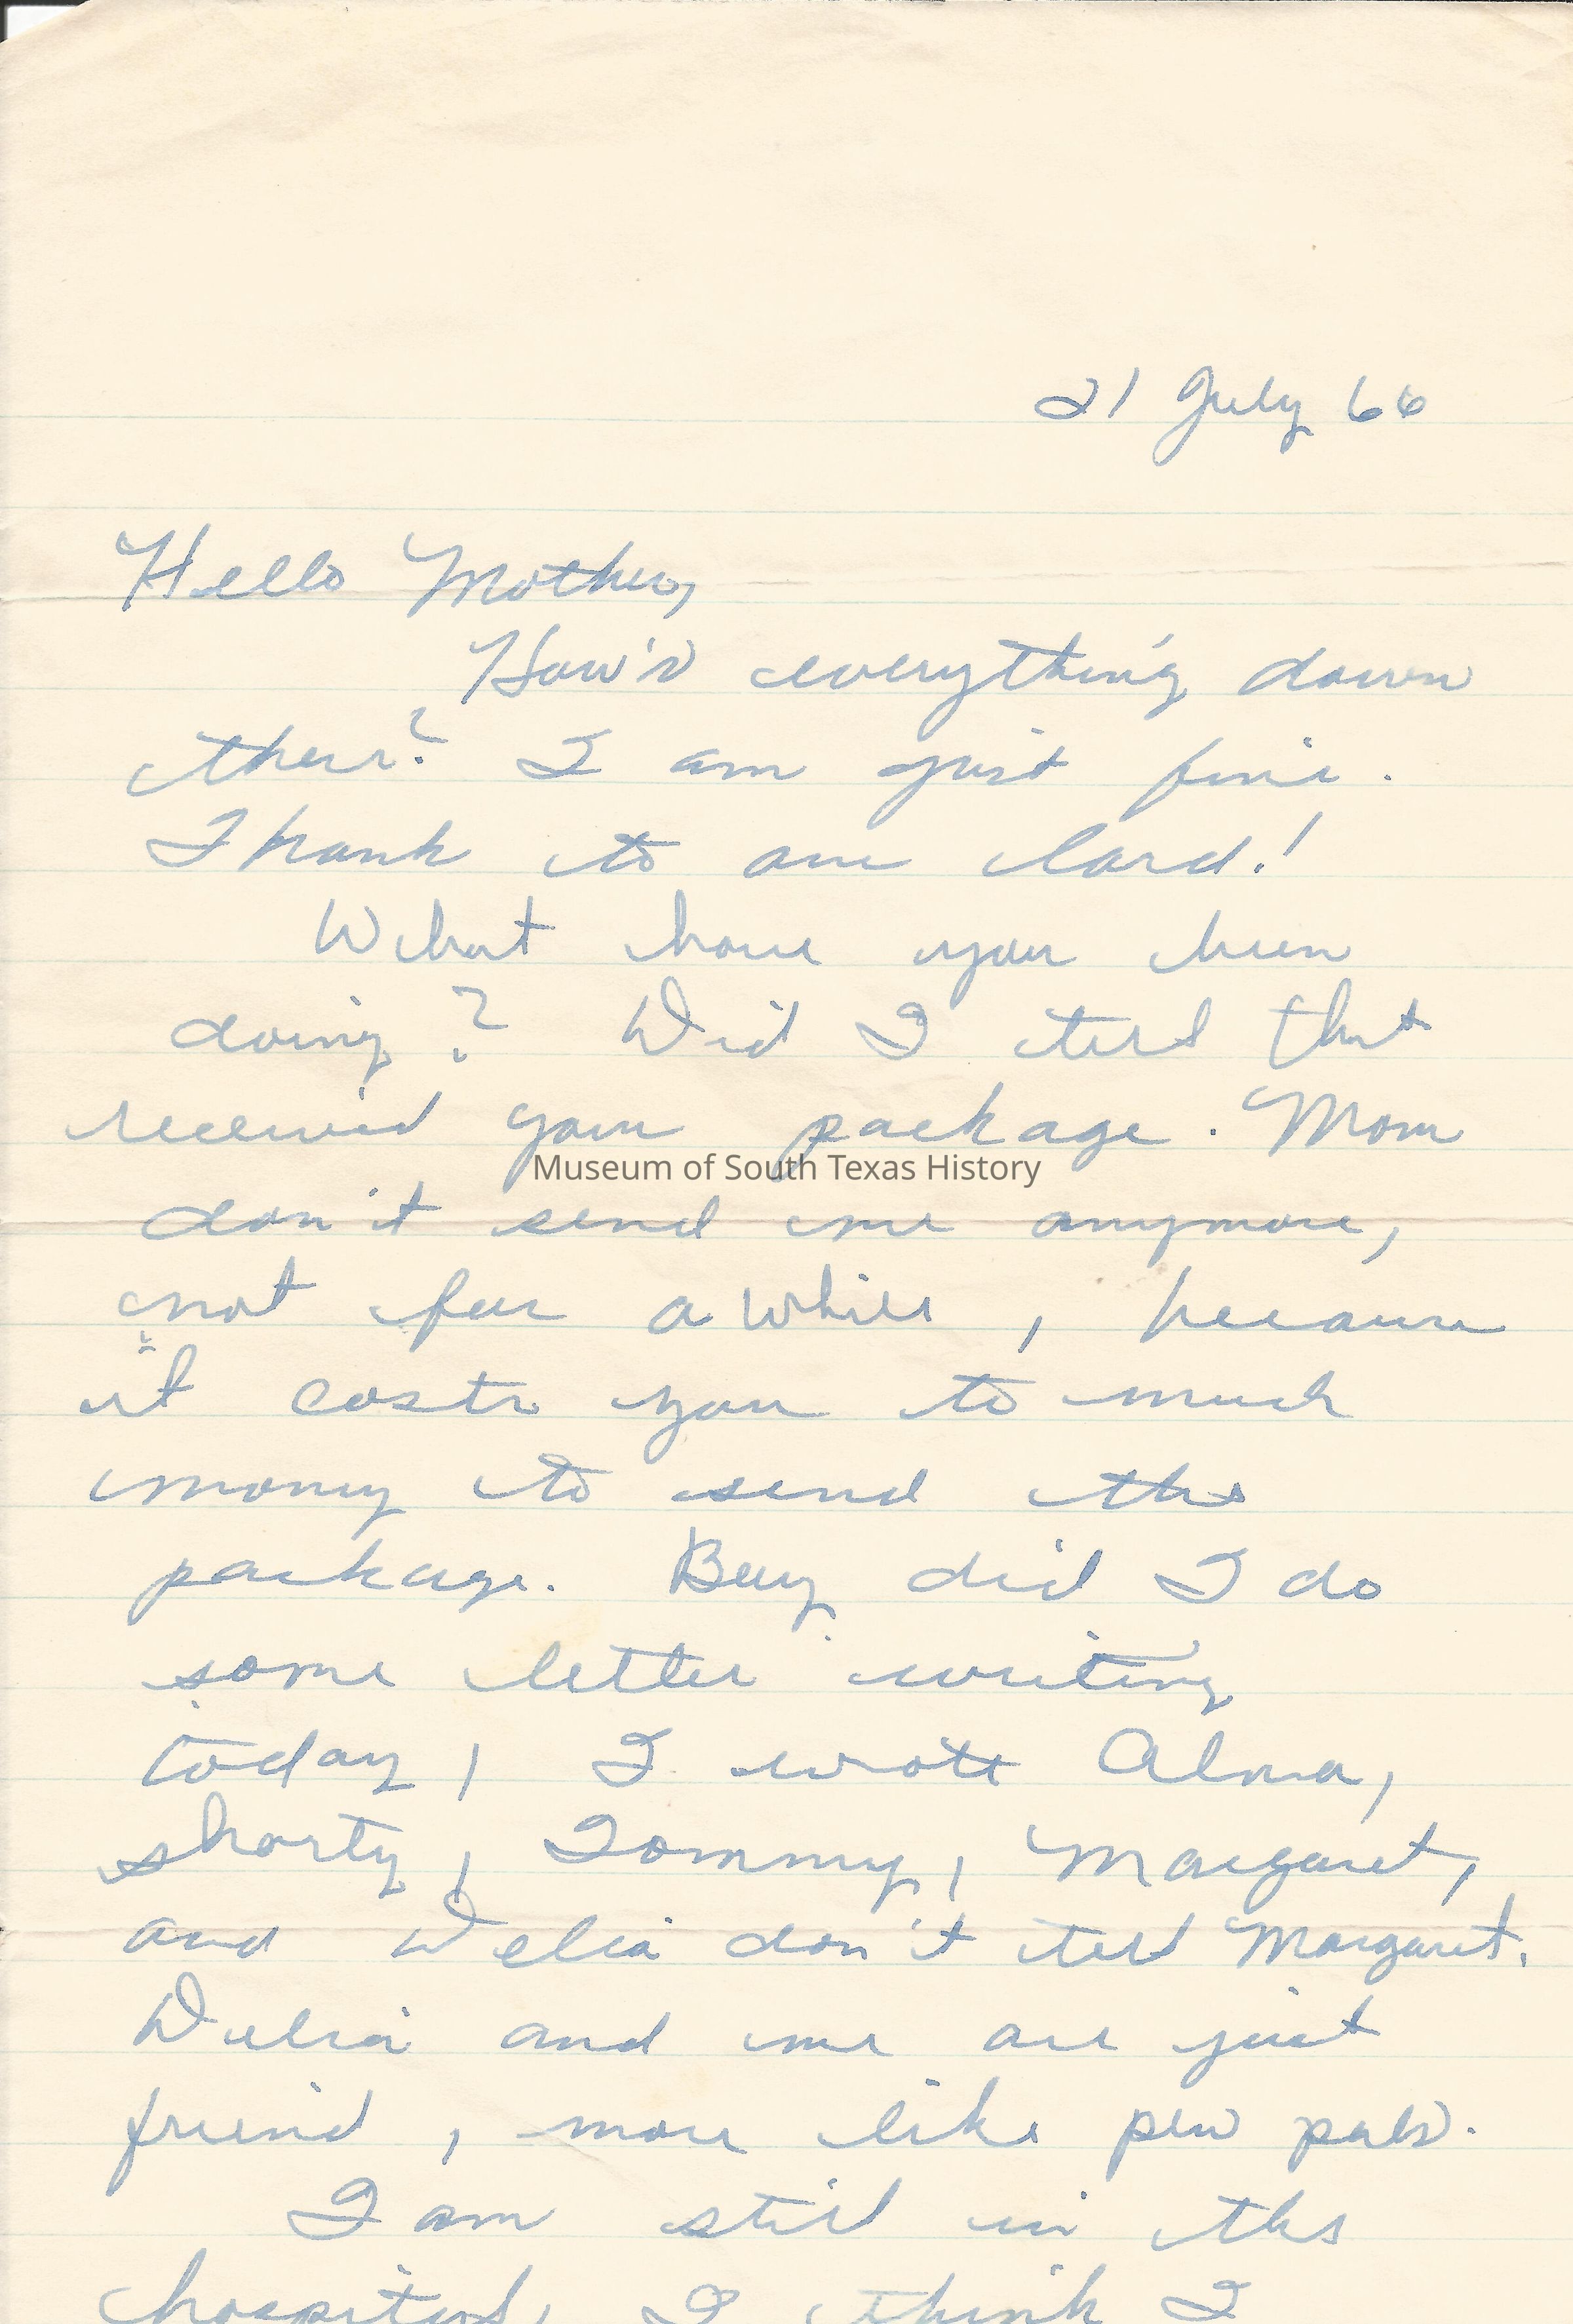 21 July 66
Hello Mother,
How's everything down
there? I am just fine.
Thank to our lord!
What have you been
doing? Did I tell that
received your package. Mom
Museum of South Texas History
don't send me anymore,
not for a while, because
it costs you to much
money to send the
package. Boy did I do
some letter writing
today, I wrote Alma,
shorty, Tommy, Margaret,
and Delia don't tell Margaret.
Delia and me are just
friend, more like pen pals.
I am still in the
hospital, I think I